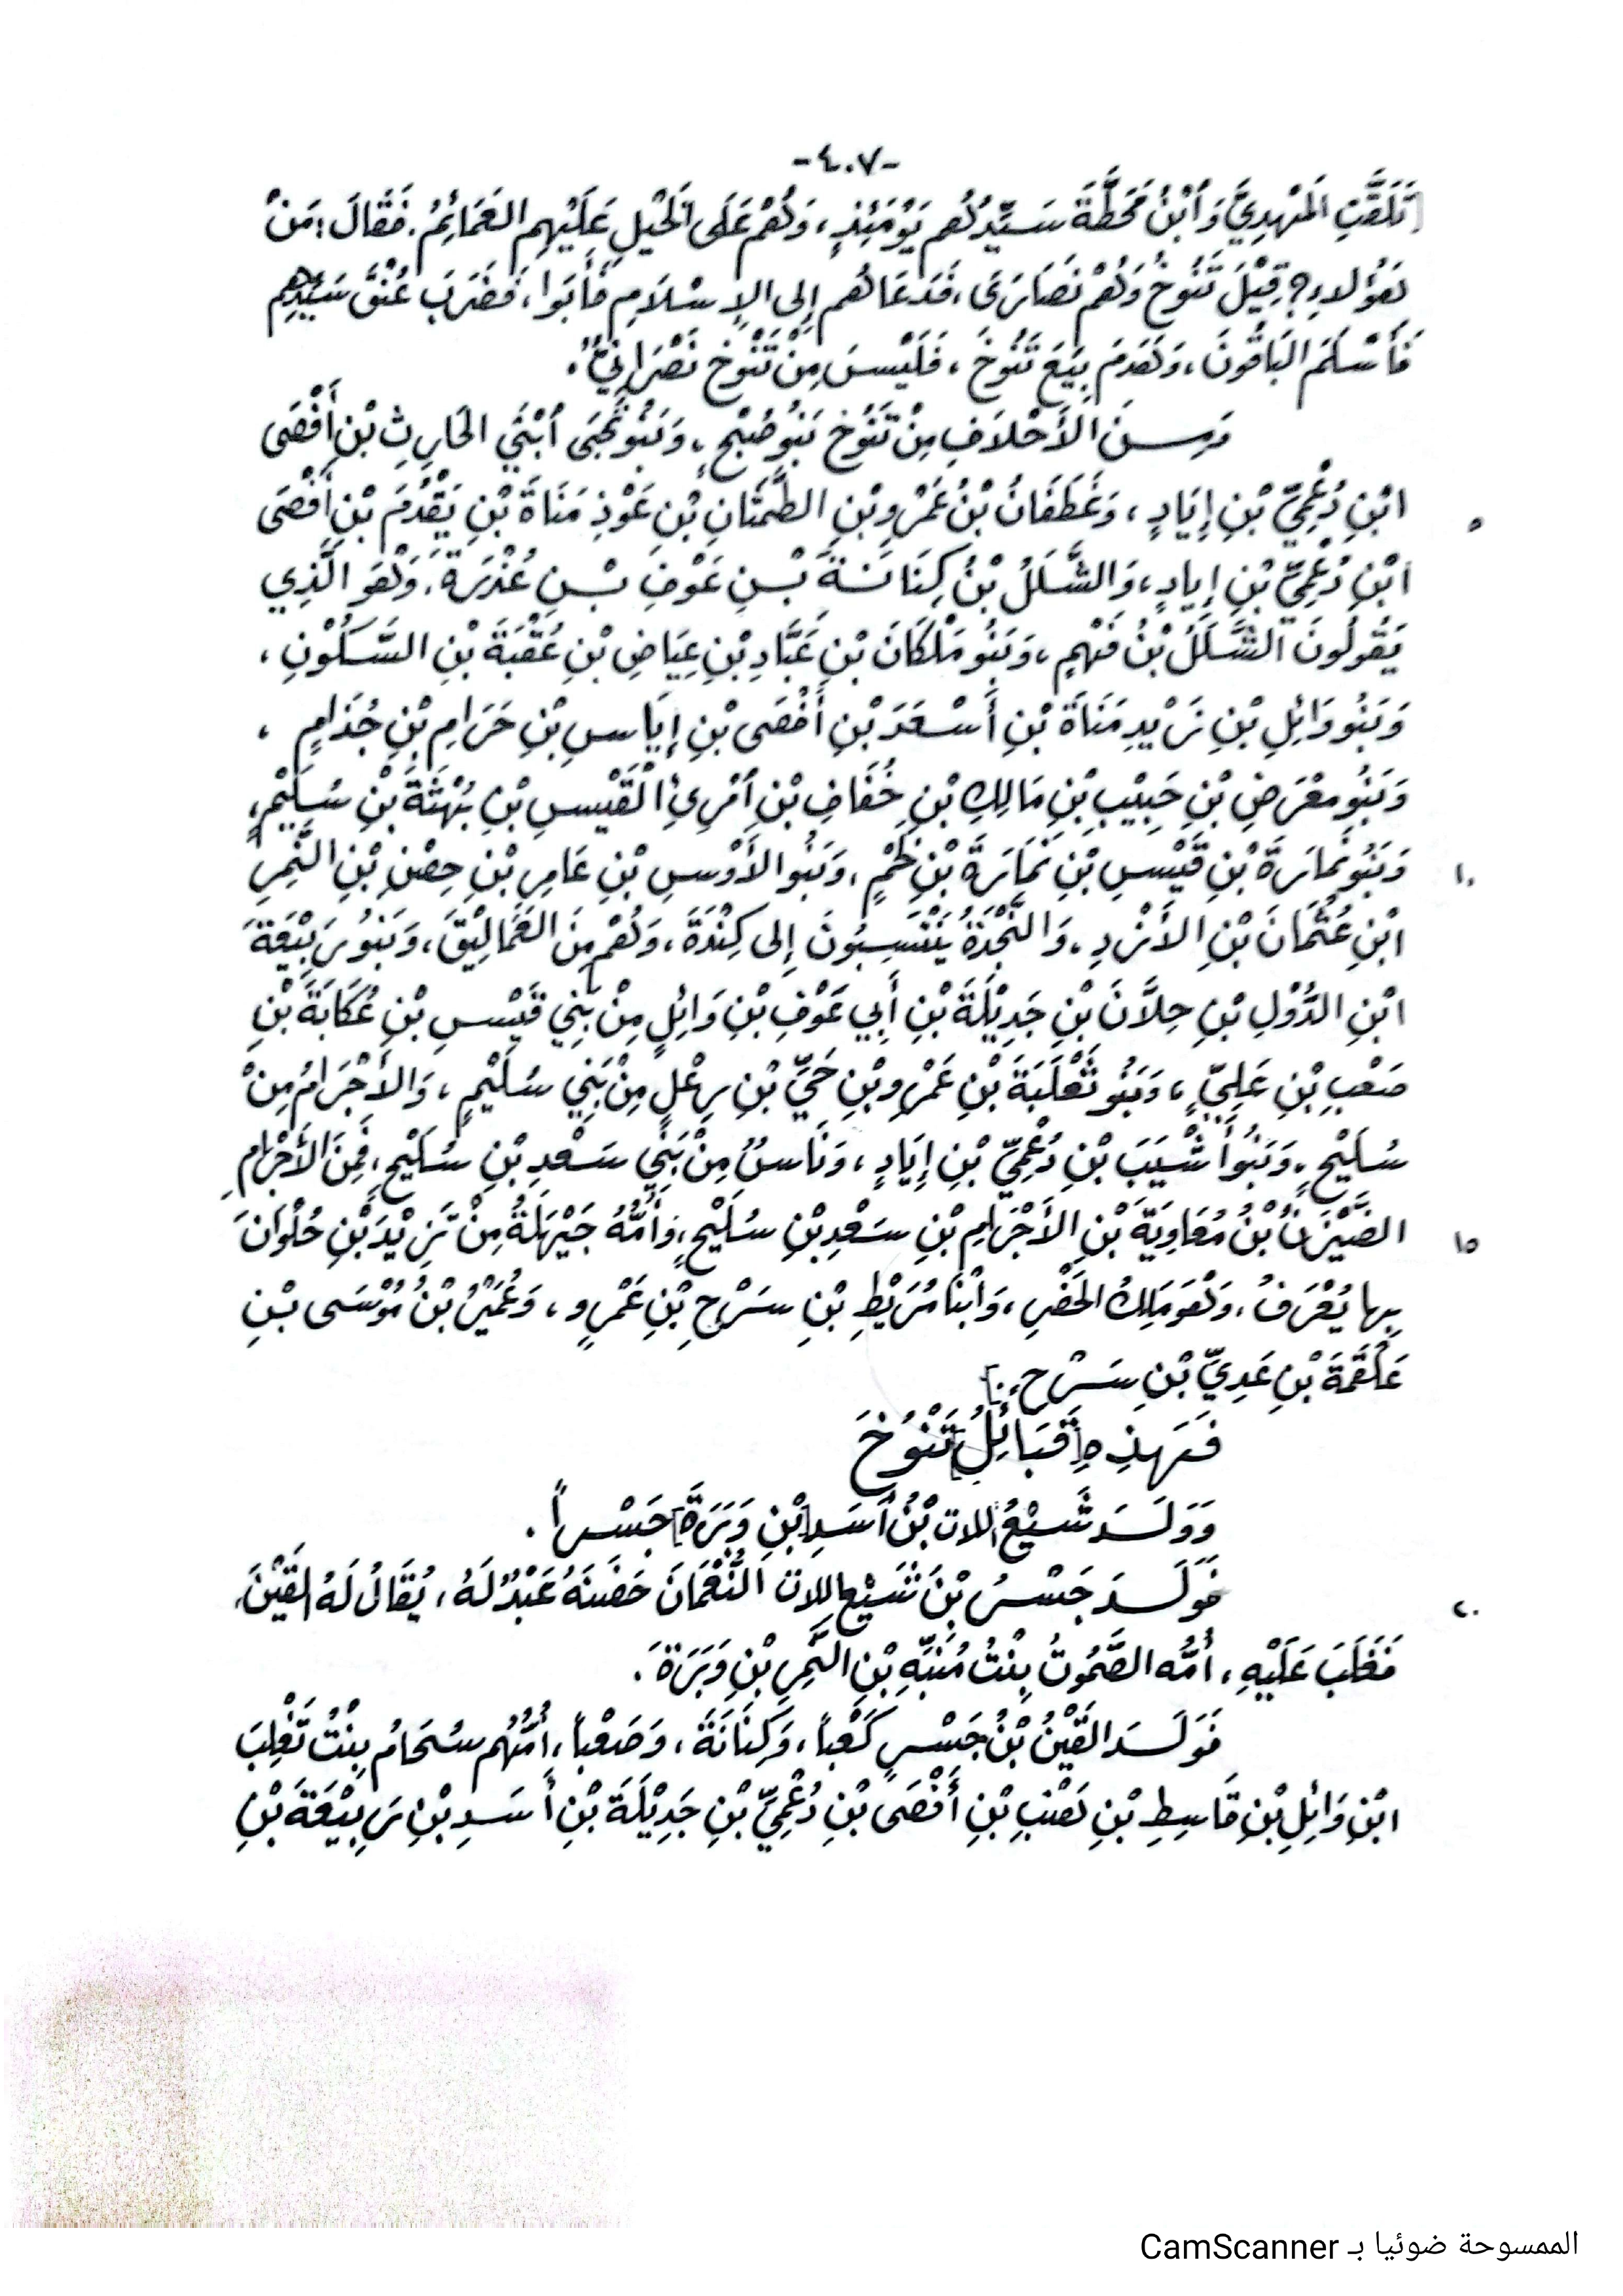 -٤٠٧-
[تَلَقَّتِ الْمَهْدِيَّ وَابْنُ مَحَطَّةَ سَيِّدُهُم يَوْمَئِذٍ، وَهُمْ عَلَى الْخَيْلِ عَلَيْهِم العَمَائِمُ. فَقَالَ: مَنْ
هَؤُلاءِ؟ قِيْلَ تَنُوخُ وَهُمْ نَصَارَى، فَدَعَاهُم إِلى الإِسْلَامِ فَأَبَوا، فَضَرَبَ عُنُقَ سَيِّدِهِم
فَأَسْلَمَ البَاقُونَ، وَهَدَمَ بِيَعَ تَنُوخَ، فَلَيْسَ مِنْ تَنُوخَ نَصْرَانِيٌّ.
وَمِنَ الأَحْلَافِ مِنْ تَنُوخَ بَنُو صُبْحٍ، وَبَنُو نُجَى ابْنَي الحَارِثِ بْنِ أَفْصَى
٥ ابْنِ دُعْمِيِّ بْنِ إِيَادٍ، وَغَطَفَانُ بْنُ عَمْرِو بْنِ الطَّمَثَانِ بْنِ عَوْذِ مَنَاةَ بْنِ يَقْدُمَ بْنِ أَفْصَى
ابْنِ دُعْمِيِّ بْنِ إِيادٍ، وَالشَّلَلُ بْنُ كِنَانَةَ بْنِ عَوْفِ بْنِ عُذْرَةَ، وَهُوَ الَّذِي
يَقُولُونَ الشَّلَلُ بْنُ فَهْمٍ، وَبَنُو مَلْكَانَ بْنِ عَبَّادِ بْنِ عِيَاضِ بْنِ عُقْبَةَ بْنِ السَّكُوْنِ،
وَبَنُو وَائِلِ بْنِ زَيْدِ مَنَاةَ بْنِ أَسْعَدَ بْنِ أَفْصَى بْنِ إِيَاسِ بْنِ حَرَامِ بْنِ جُذَامٍ،
وَبَنُو مِعْرَضِ بْنِ حَبِيْبِ بْنِ مَالِكِ بْنِ خُفَافِ بْنِ امْرِئِ الْقَيْسِ بْنِ بُهْثَةَ بْنِ سُلَيْمٍ،
١٠ وَبَنُو نُمَارَةَ بْنِ قَيْسِ بْنِ نُمَارَةَ بْنِ لَخْمٍ، وَبَنُو الأَوْسِ بْنِ عَامِرِ بْنِ حِصْنِ بْنِ النَّمِرِ
ابْنِ عُثْمَانَ بْنِ الأَزْدِ، وَالنَّجْدَةُ يَنْتَسِبُونَ إِلى كِنْدَةَ، وَهُمْ مِنَ العَمَالِيْقَ، وَبَنُو رَبِيْعَةَ
ابْنِ الدُّوْلِ بْنِ حِلَّانَ بْنِ جَدِيْلَةَ بْنِ أَبِي عَوْفِ بْنِ وَائِلٍ مِنْ بَنِي قَيْسِ بْنِ عُكَابَةَ بْنِ
صَعْبِ بْنِ عَلِيٍّ، وَبَنُو ثَعْلَبَةَ بْنِ عَمْرِو بْنِ حَيِّ بْنِ رِعْلٍ مِنْ بَنِي سُلَيْمٍ، وَالأَجْرَامُ مِنْ
سُلَيْحٍ، وَبَنُو أَشْيَبَ بْنِ دُعْمِيِّ بْنِ إِيَادٍ، وَنَاسٌ مِنْ بَنِي سَعْدِ بْنِ سُلَيْحٍ، فَمِنَ الأَجْرَامِ
١٥ الضَّيْزَنُ بْنُ مُعَاوِيَةَ بْنِ الأَجْرَامِ بْنِ سَعْدِ بْنِ سُلَيْحٍ، وَأُمُّهُ جَيْهَلَةُ مِنْ تَزِيْدَ بْنِ حُلْوَانَ
بِها يُعْرَفُ، وَهُوَ مَلِكُ الحَضْرِ، وَابْنَا مُرَيْطِ بْنِ سَرْحِ بْنِ عَمْرٍو، وَعُمَيْرُ بْنُ مُوْسَى بْنِ
عَلْقَمَةَ بْنِ عَدِيِّ بْنِ سَرْحٍ.]
فَهَذِهِ [قَبَائِلُ] تَنُوْخَ
وَوَلَدَ شَيْعُ اللات بْنُ أَسَدِ [بْنِ وَبَرَةَ] جَسْراً.
٢٠ فَوَلَدَ جَسْرُ بْنُ شَيْعِ اللات النُّعْمَانَ حَضَنَهُ عَبْدٌ لَهُ، يُقَالُ لَهُ القَيْنَ،
فَغَلَبَ عَلَيْهِ، أُمُّه الصَّمُوتُ بِنْتُ مُنَبِّهِ بْنِ النَّمِرِ بْنِ وَبَرَةَ.
فَوَلَدَ القَيْنُ بْنُ جَسْرٍ كَعْباً، وَكِنَانَةَ، وَصَعْباً، أُمُّهُم سُحَامُ بِنْتُ تَغْلِبَ
ابْنِ وَائِلِ بْنِ قَاسِطِ بْنِ هِنْبِ بْنِ أَفْصَى بْنِ دُعْمِيِّ بْنِ جَدِيْلَةَ بْنِ أَسَدِ بْنِ رَبِيْعَةَ بْنِ
الممسوحة ضوئيا بـ CamScanner